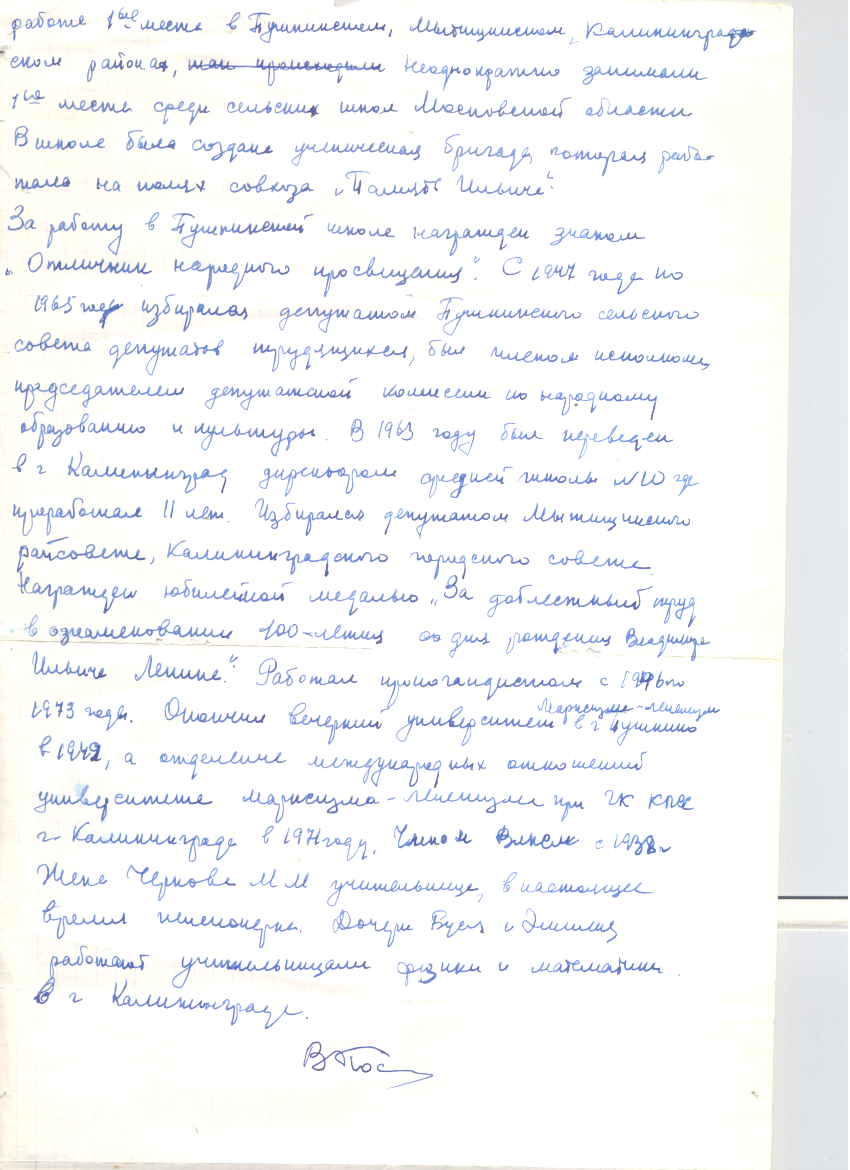 работе 1ые места в Пушкинском, Мытищинском, Калининград-
ском районах, так происходили неоднократно занимали
1ые места среди сельских школ Московской области
В школе была создана ученическая бригада, которая рабо-
тала на полях совхоза „Память Ильича".
За работу в Пушкинской школе награжден знаком
„Отличник народного просвещения". С 1947 года по
1965 год избирался депутатом Пушкинского сельского
совета депутатов трудящихся, был членом исполкома,
председателем депутатской комиссии по народному
образованию и культуры. В 1963 году был переведен
в г Калининград директором средней школы №10 где
проработал 11 лет. Избирался депутатом Мытищинского
райсовета, Калининградского городского совета.
Награжден юбилейной медалью „За доблестный труд
в ознаменовании 100-летия со дня рождения Владимира
Ильича Ленина". Работал пропагандистом с 1946 по
1973 годы. Окончил вечерний университет Марксизма-ленинизма в г Пушкино
в 1949, а отделение международных отношений
университета марксизма-ленинизма при ГК КПСС
г Калининграда в 1971 году. Членом ВЛКСМ с 1938 г
Жена Чернова М М учительница, в настоящее
время пенсионерка. Дочери и Эмилия
работают учительницами физики и математики
в г Калининграде.